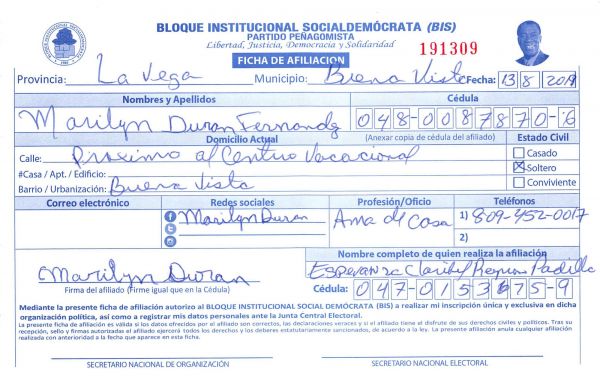 BLOQUE INSTITUCIONAL SOCIALDEMÓCRATA (BIS)
PARTIDO PEÑAGOMISTA
Libertad, Justicia, Democracia y Solidaridad
FICHA DE AFILIACION
191309
Provincia: La Vega Municipio: Buena Vista Fecha: 13 8 2019
Nombres y Apellidos Cédula
Marilyn Duran Fernandz 048-0087870-6
Domicilio Actual (Anexar copia de cédula del afiliado) Estado Civil
Calle: Proximo al Centro Vacacional
Casado
#Casa / Apt. / Edificio: Soltero
Barrio / Urbanización: Buena Vista Conviviente
Correo electrónico Redes sociales Profesión/Oficio Teléfonos
Marilyn Duran Ama de Casa 1) 809-452-0017
2)
Nombre completo de quien realiza la afiliación
Marilyn Duran Esperanza Claribel Padilla
Firma del afiliado (Firme igual que en la Cédula) Cédula: 047-0153675-9
Mediante la presente ficha de afiliación autorizo al BLOQUE INSTITUCIONAL SOCIAL DEMÓCRATA (BIS) a realizar mi inscripción única y exclusiva en dicha
organización política, así como a registrar mis datos personales ante la Junta Central Electoral.
La presente ficha de afiliación es válida si los datos ofrecidos por el afiliado son correctos, las declaraciones veraces y si el afiliado tiene el disfrute de sus derechos civiles y políticos. Tras su
recepción, sello y firmas autorizadas el afiliado ejercerá todos los derechos y los deberes estatutariamente sancionados, de acuerdo a la ley. La presente afiliación anula cualquier afiliación
realizada con anterioridad a la fecha que aparece en esta ficha.
SECRETARIO NACIONAL DE ORGANIZACIÓN SECRETARIO NACIONAL ELECTORAL